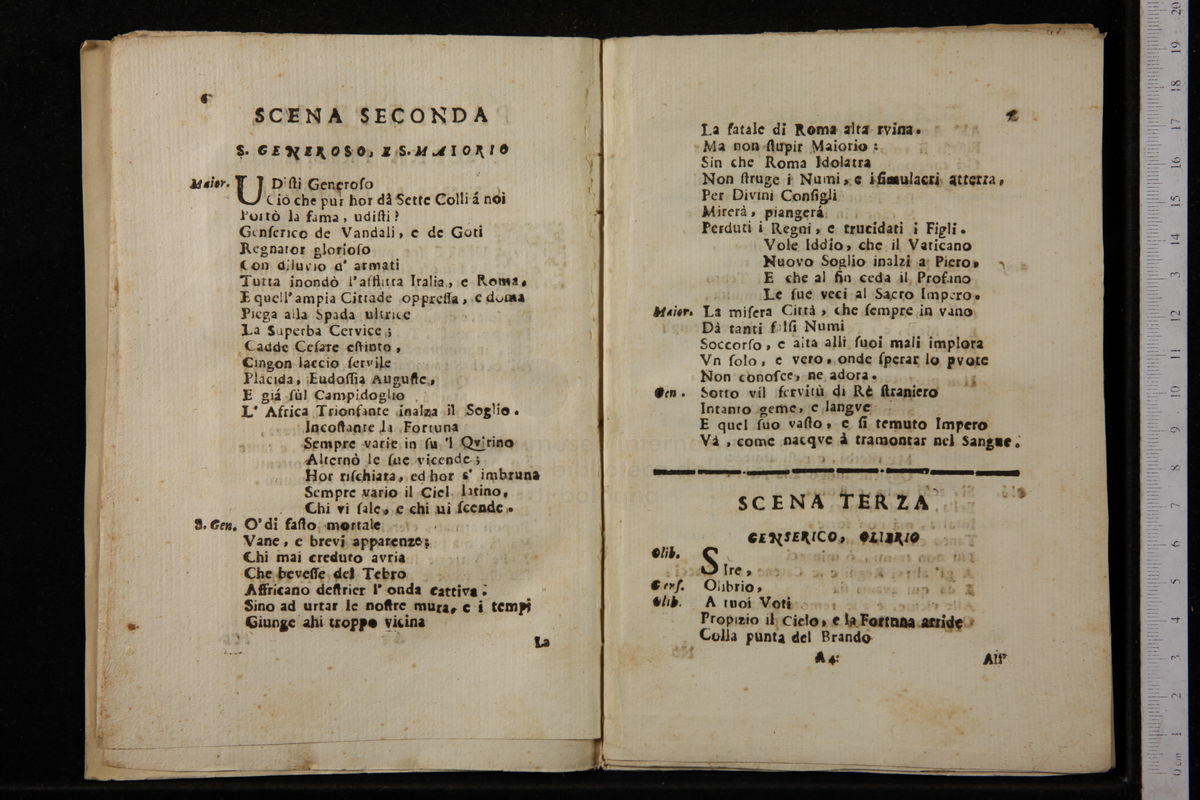 6
SCENA SECONDA
S. GENEROSO, E S. MAIORIO
Maior. UDisti Generoso
Ciò che pur hor dà Sette Colli á noi
Portò la fama, udisti?
Genserico de Vandali, e de Goti
Regnator glorioso
Con diluvio d' armati
Tutta inondò l'afflitta Italia, e Roma,
E quell' ampia Cittade oppressa, e doma
Piega alla Spada ultrice
La Superba Cervice;
Cadde Cesare estinto,
Cingon laccio servile
Placida, Eudossia Auguste,
E giá sùl Campidoglio
L' Africa Trionfante inalza il Soglio.
Incostante la Fortuna
Sempre varie in su 'l Qvirino
Alternò le sue vicende;
Hor rischiara, ed hor s' imbruna
Sempre vario il Ciel latino,
Chi vi sale, e chi ui scende.
S. Gen. O' di fasto mortale
Vane, e brevi apparenze;
Chi mai creduto avria
Che bevesse del Tebro
Affricano destrier l' onda cattiva:
Sino ad urtar le nostre mura, e i tempi
Giunge ahi troppo vicina
La
La fatale di Roma alta rvina.
Ma non stupir Maiorio:
Sin che Roma Idolatra
Non struge i Numi, e i simulacri atterra,
Per Divini Consigli
Mirerà, piangerá
Perduti i Regni, e trucidati i Figli.
Vole Iddio, che il Vaticano
Nuovo Soglio inalzi a Piero,
E che al fin ceda il Profano
Le sue veci al Sacro Impero.
Maior. La misera Città, che sempre in vano
Dà tanti falsi Numi
Soccorso, e aita alli suoi mali implora
Vn solo, e vero, onde sperar lo pvote
Non conosce, ne adora.
Gen. Sotto vil servitù di Rè straniero
Intanto geme, e langve
E quel suo vasto, e sì temuto Impero
Và, come nacqve à tramontar nel Sangue.
SCENA TERZA
GENSERICO, OLIBRIO
Olib. SIre,
Gens. Olibrio,
Olib. A tuoi Voti
Propizio il Cielo, e la Fortuna arride
Colla punta del Brando
A 4
All'